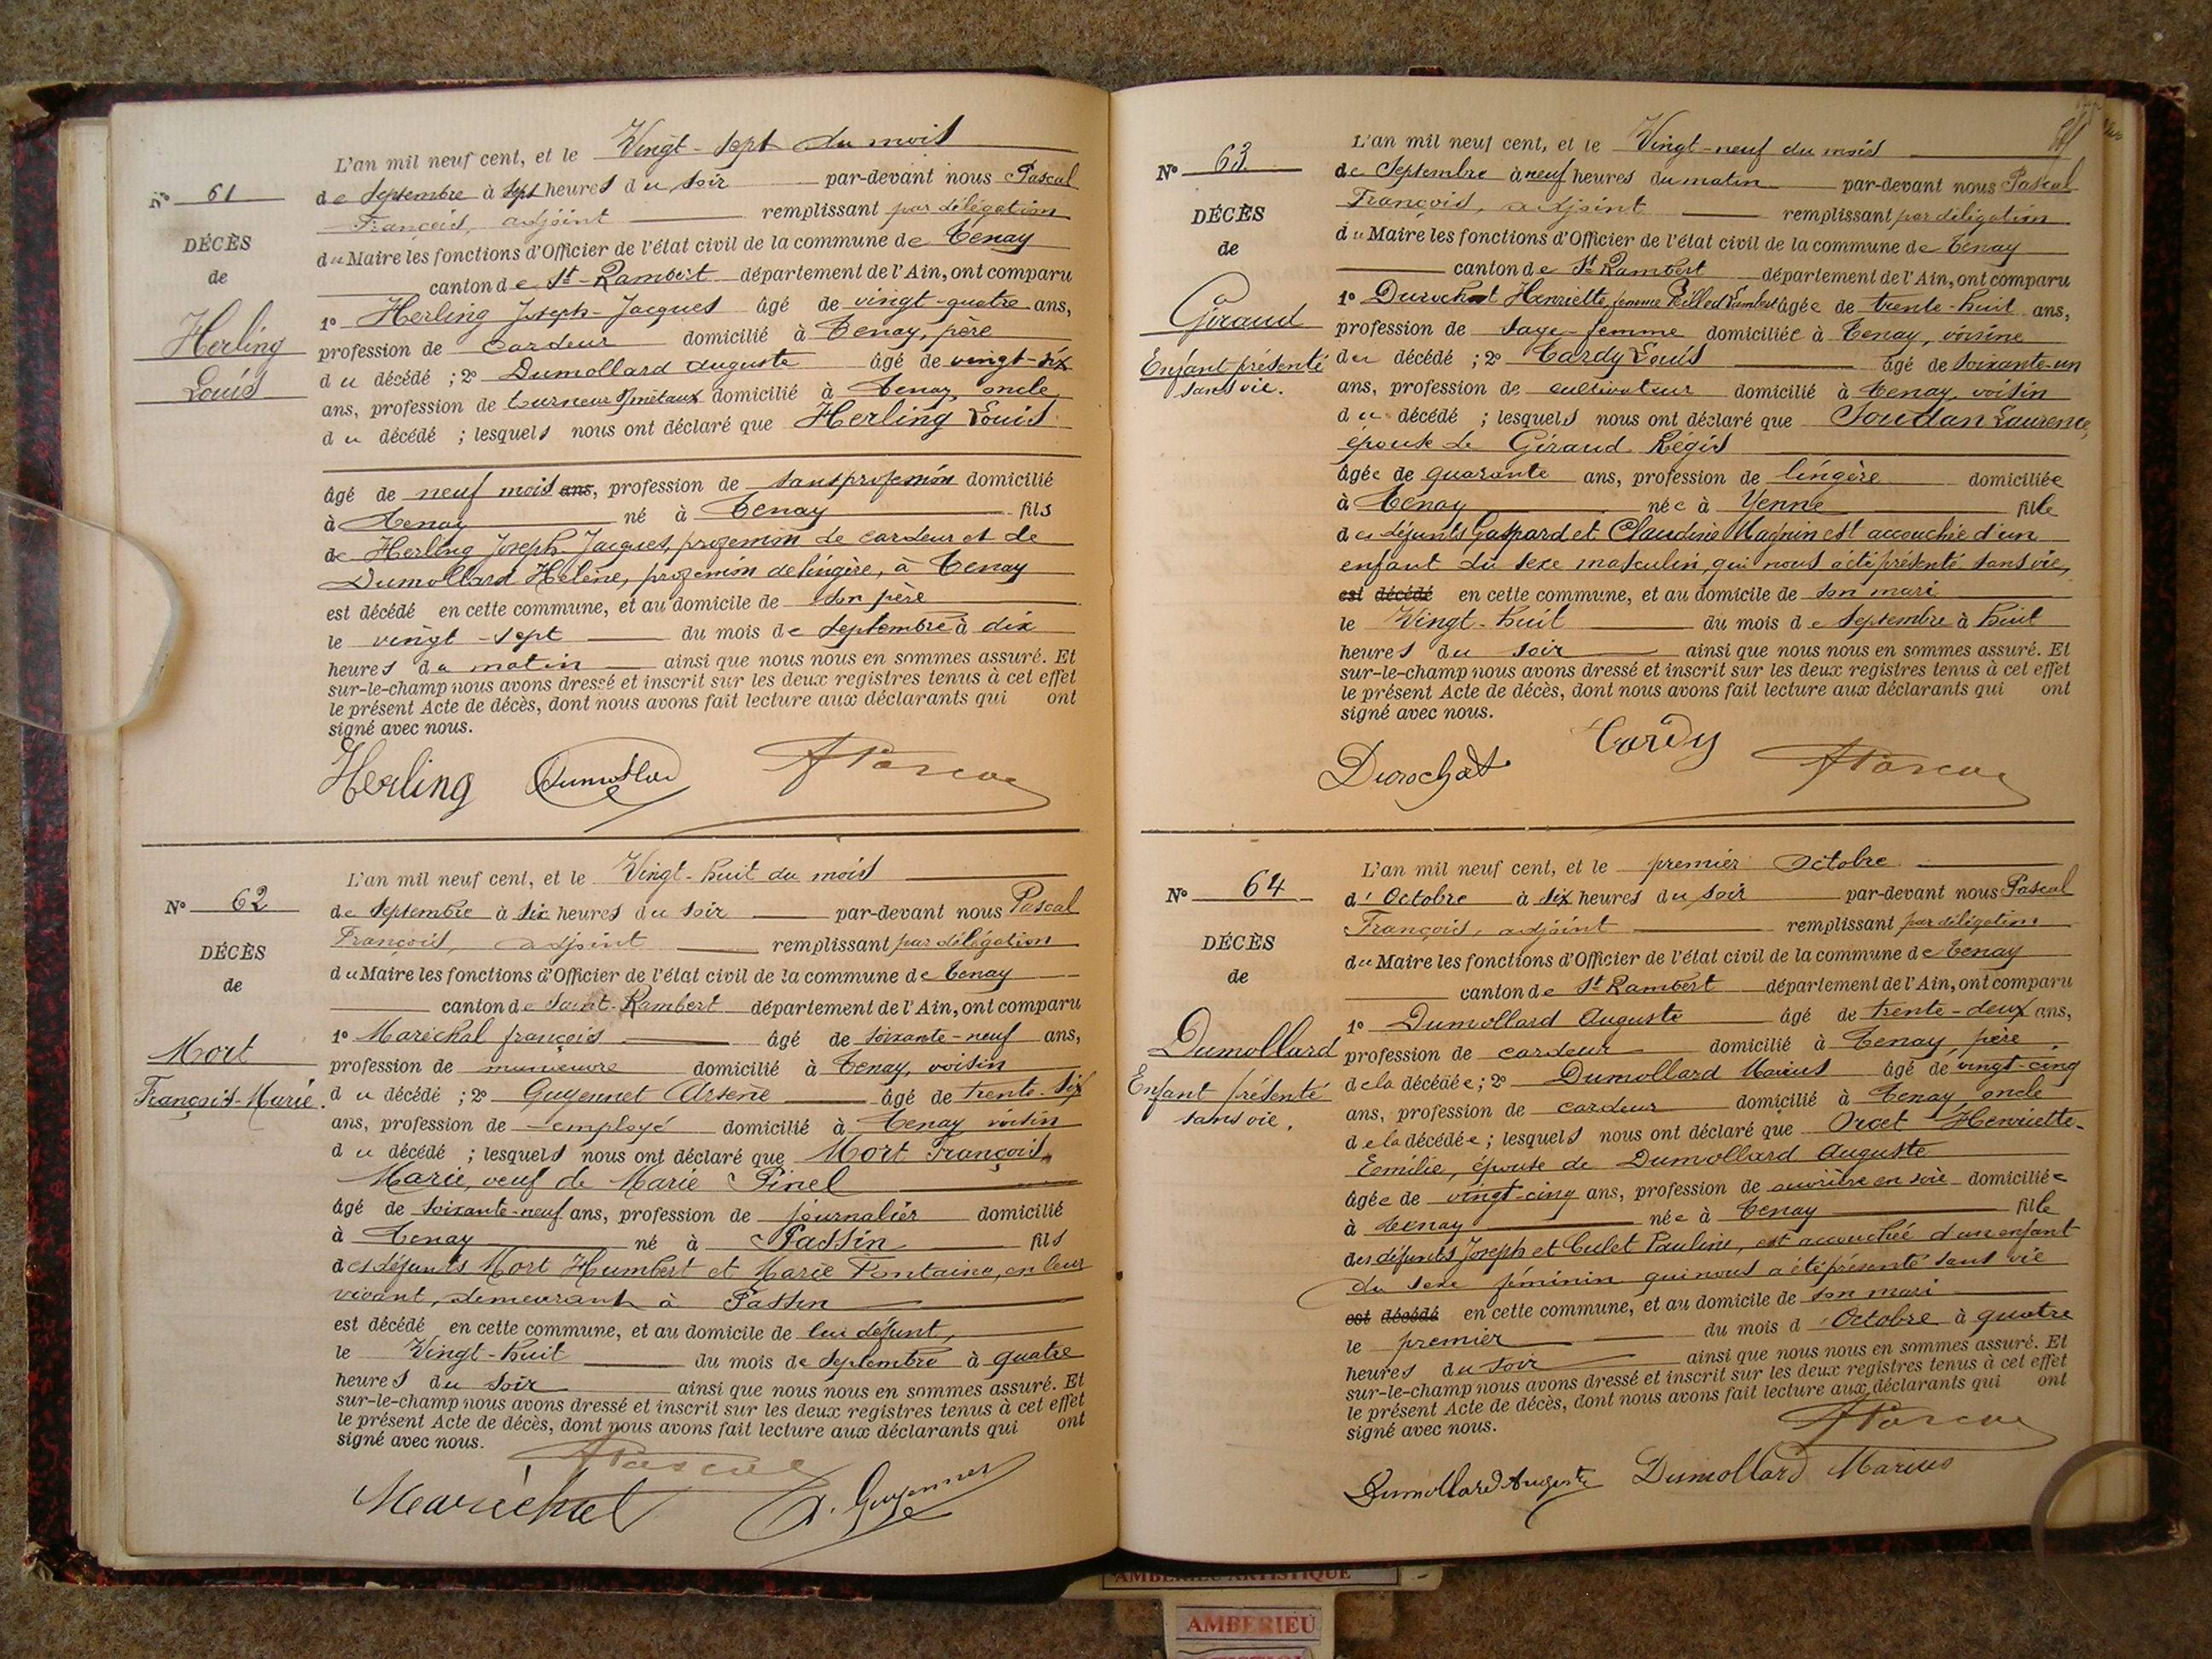 N° 61
DÉCÈS
de
Herling
Louis
L'an mil neuf cent, et le Vingt-sept du mois
de Septembre à sept heures du soir par-devant nous Pascal
François, adjoint remplissant par délégation
du Maire les fonctions d'Officier de l'état civil de la commune de Tenay
canton de St-Rambert département de l'Ain, ont comparu
1° Herling Joseph-Jacques âgé de vingt-quatre ans,
profession de cardeur domicilié à Tenay, père
du décédé ; 2° Dumollard Auguste âgé de vingt-six
ans, profession de tourneur s/métaux domicilié à Tenay, oncle
du décédé ; lesquels nous ont déclaré que Herling Louis
âgé de neuf mois ans, profession de sans profession domicilié
à Tenay né à Tenay fils
de Herling Joseph-Jacques, profession de cardeur et de
Dumollard Hélène, profession de lingère, à Tenay
est décédé en cette commune, et au domicile de son père
le vingt-sept du mois de Septembre à dix
heures du matin ainsi que nous nous en sommes assuré. Et
sur-le-champ nous avons dressé et inscrit sur les deux registres tenus à cet effet
le présent Acte de décès, dont nous avons fait lecture aux déclarants qui ont
signé avec nous.
Herling Dumollard Pascal
N° 62
DÉCÈS
de
Mort
François-Marie.
L'an mil neuf cent, et le Vingt-huit du mois
de Septembre à six heures du soir par-devant nous Pascal
François, adjoint remplissant par délégation
du Maire les fonctions d'Officier de l'état civil de la commune de Tenay
canton de Saint-Rambert département de l'Ain, ont comparu
1° Maréchal françois âgé de soixante-neuf ans,
profession de manœuvre domicilié à Tenay, voisin
du décédé ; 2° Guyennet Arsène âgé de trente-six
ans, profession de employé domicilié à Tenay voisin
du décédé ; lesquels nous ont déclaré que Mort François,
Marie, veuf de Marie Pinel
âgé de soixante-neuf ans, profession de journalier domicilié
à Tenay né à Passin fils
des défunts Mort Humbert et Marie Fontaine, en leur
vivant, demeurant à Passin
est décédé en cette commune, et au domicile de lui défunt,
le Vingt-huit du mois de Septembre à quatre
heures du soir ainsi que nous nous en sommes assuré. Et
sur-le-champ nous avons dressé et inscrit sur les deux registres tenus à cet effet
le présent Acte de décès, dont nous avons fait lecture aux déclarants qui ont
signé avec nous.
Pascal
Maréchal A. Guyennet
N° 63
DÉCÈS
de
Giraud
Enfant présenté
sans vie.
L'an mil neuf cent, et le Vingt-neuf du mois
de Septembre à neuf heures du matin par-devant nous Pascal
François, adjoint remplissant par délégation
du Maire les fonctions d'Officier de l'état civil de la commune de Tenay
canton de St Rambert département de l'Ain, ont comparu
1° Durochat Henriette, femme âgée de trente-huit ans,
profession de sage-femme domiciliée à Tenay, voisine
du décédé ; 2° Tardy Louis âgé de soixante-un
ans, profession de cultivateur domicilié à Tenay, voisin
du décédé ; lesquels nous ont déclaré que Soudan Laurence,
épouse de Giraud Régis
âgée de quarante ans, profession de lingère domiciliée
à Tenay née à Yenne fille
des défunts Gaspard et Claudine Magnin est accouchée d'un
enfant du sexe masculin, qui nous a été présenté sans vie,
est décédé en cette commune, et au domicile de son mari
le Vingt-huit du mois de Septembre à huit
heures du soir ainsi que nous nous en sommes assuré. Et
sur-le-champ nous avons dressé et inscrit sur les deux registres tenus à cet effet
le présent Acte de décès, dont nous avons fait lecture aux déclarants qui ont
signé avec nous.
Durochat Tardy Pascal
N° 64
DÉCÈS
de
Dumollard
Enfant présenté
sans vie.
L'an mil neuf cent, et le premier Octobre
d'Octobre à six heures du soir par-devant nous Pascal
François, adjoint remplissant par délégation
du Maire les fonctions d'Officier de l'état civil de la commune de Tenay
canton de St Rambert département de l'Ain, ont comparu
1° Dumollard Auguste âgé de trente-deux ans,
profession de cardeur domicilié à Tenay, père
de la décédée ; 2° Dumollard Marius âgé de vingt-cinq
ans, profession de cardeur domicilié à Tenay, oncle
de la décédée ; lesquels nous ont déclaré que Orcet Henriette-
Emilie, épouse de Dumollard Auguste
âgée de vingt-cinq ans, profession de ouvrière en soie domiciliée
à Tenay née à Tenay fille
des défunts Joseph et Culet Pauline, est accouchée d'un enfant
du sexe féminin qui nous a été présenté sans vie
est décédé en cette commune, et au domicile de son mari
le premier du mois d'Octobre à quatre
heures du soir ainsi que nous nous en sommes assuré. Et
sur-le-champ nous avons dressé et inscrit sur les deux registres tenus à cet effet
le présent Acte de décès, dont nous avons fait lecture aux déclarants qui ont
signé avec nous.
Pascal
Dumollard Auguste Dumollard Marius
AMBERIEU ARTISTIQUE
AMBERIEU